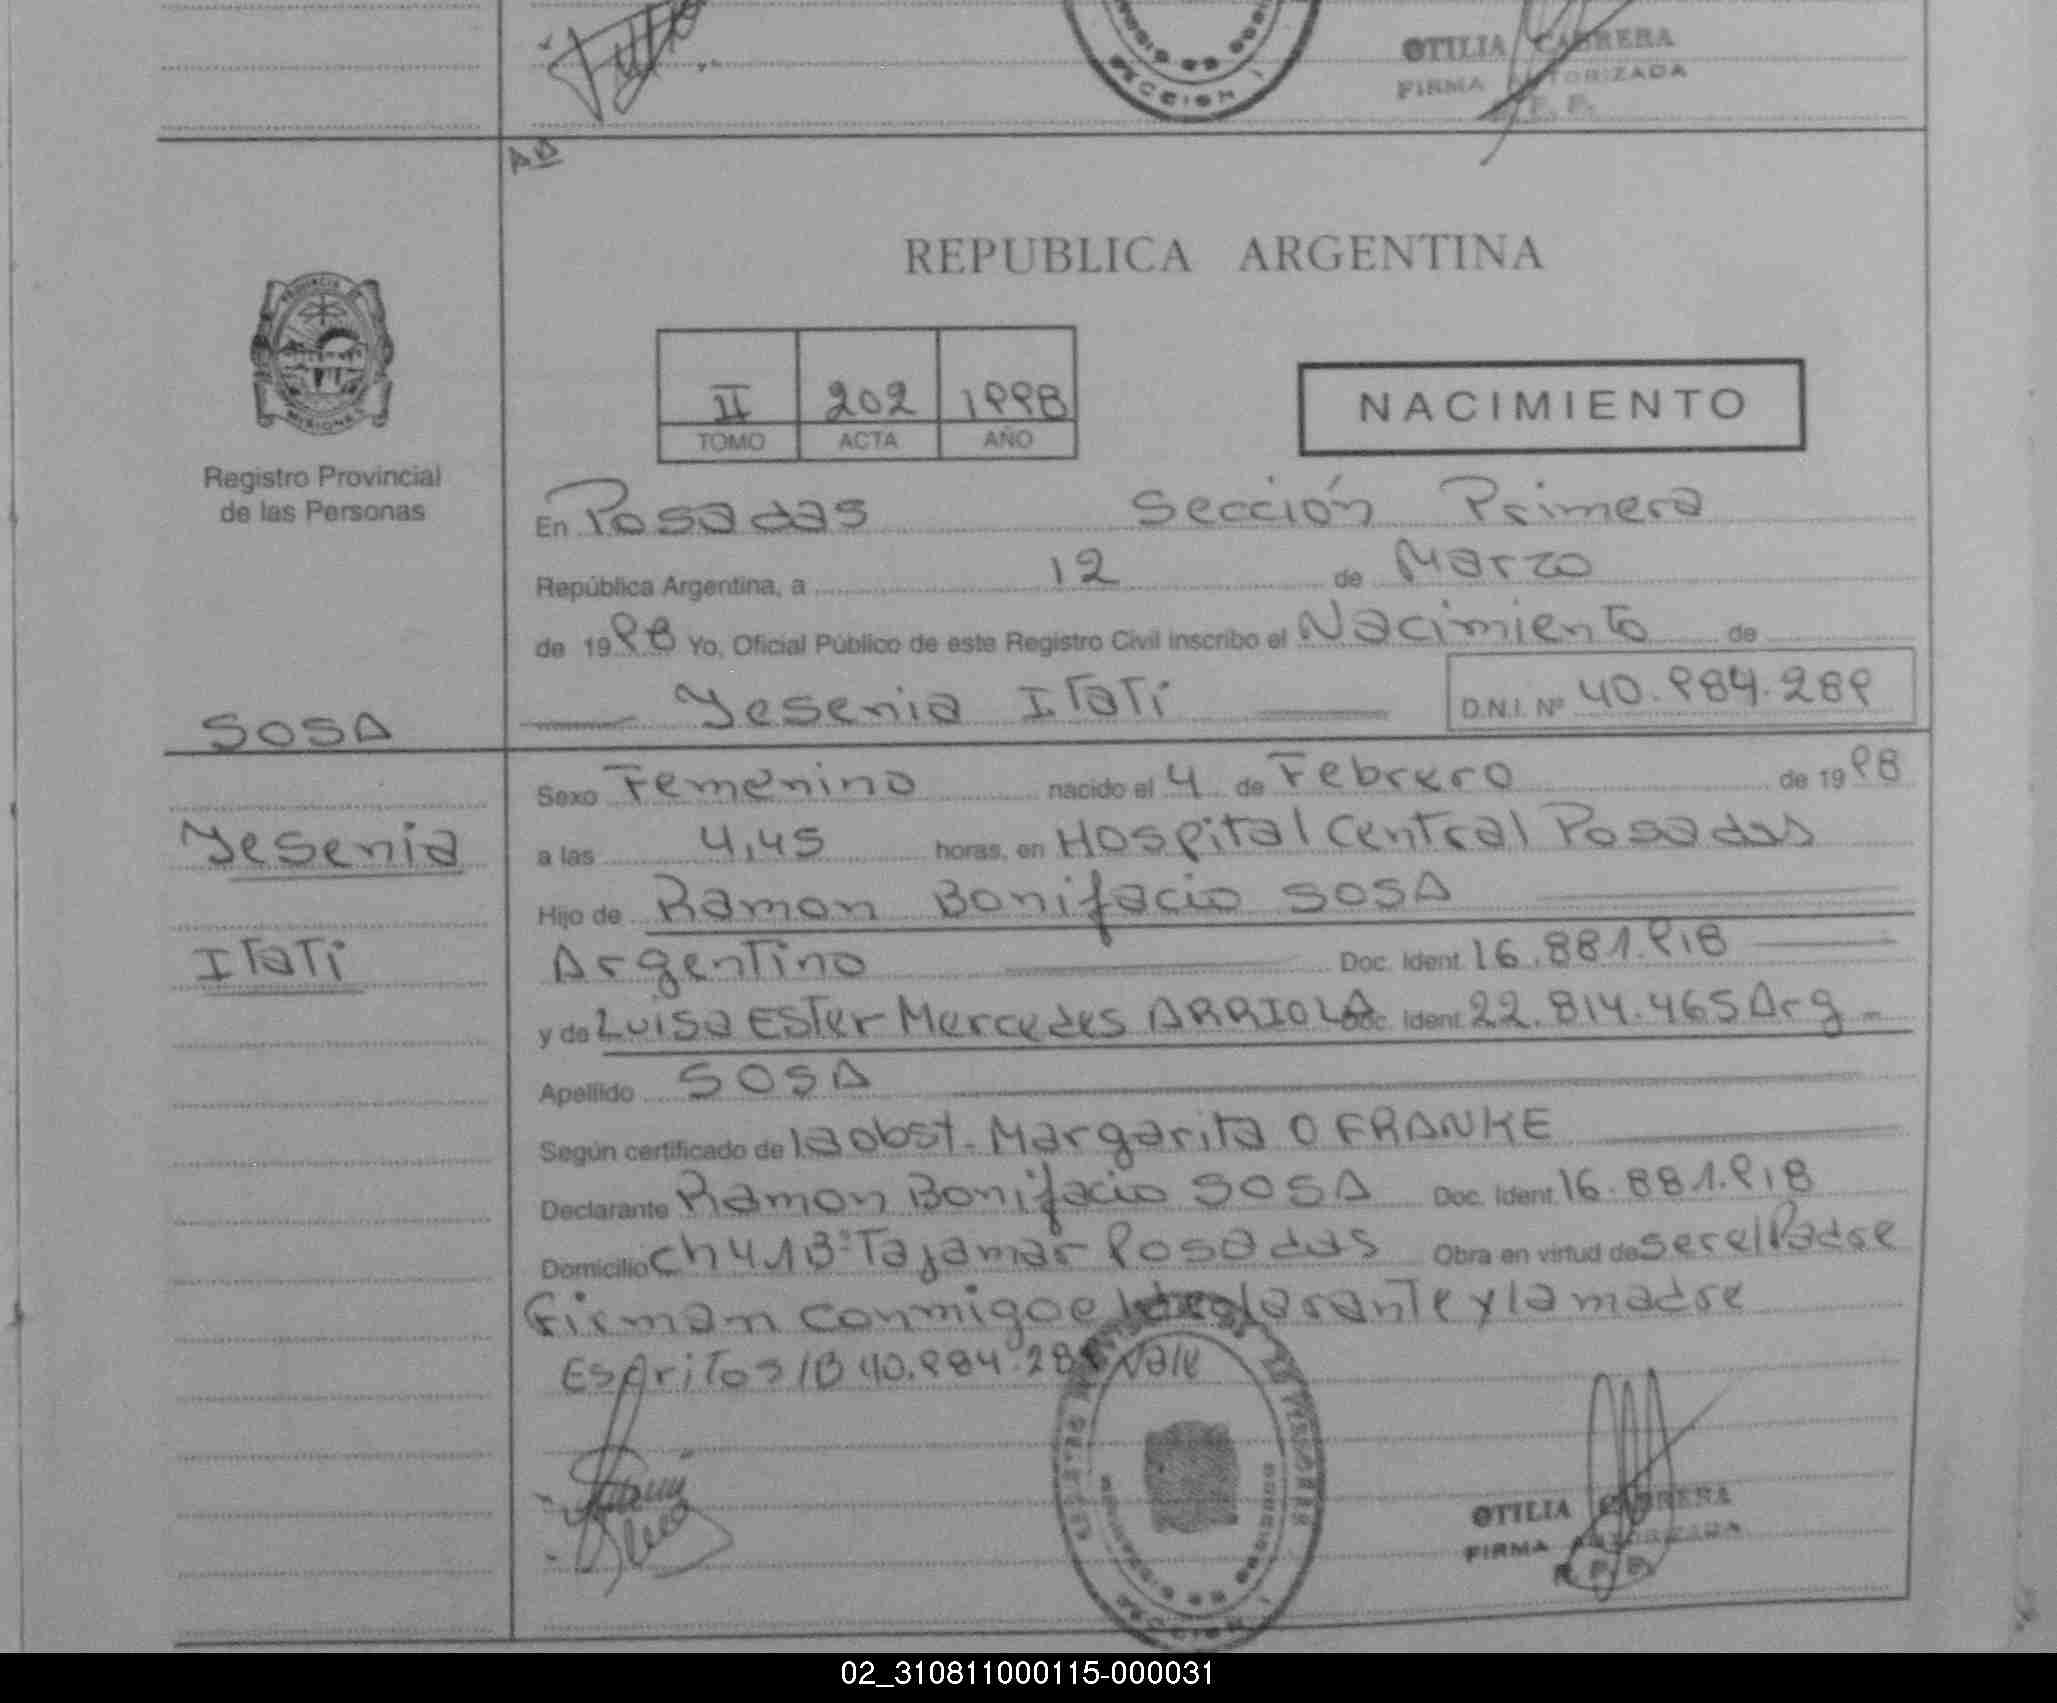 OTILIA CABRERA
FIRMA AUTORIZADA
R. P. P.
SECCION 1
REPUBLICA ARGENTINA
PROVINCIA DE
MISIONES
Registro Provincial
de las Personas
II 202 1998
TOMO ACTA AÑO
NACIMIENTO
En Posadas Sección Primera
República Argentina, a 12 de Marzo
de 1998 Yo, Oficial Público de este Registro Civil inscribo el Nacimiento de
Yesenia Itatí D.N.I. Nº 40.984.289
SOSA
Yesenia
Itatí
Sexo Femenino nacido el 4 de Febrero de 1998
a las 4,45 horas, en Hospital Central Posadas
Hijo de Ramon Bonifacio SOSA
Argentino Doc. Ident. 16.881.918
y de Luisa Ester Mercedes ARRIOLA Doc. Ident. 22.814.465 Arg
Apellido SOSA
Según certificado de la obst. Margarita O FRANKE
Declarante Ramon Bonifacio SOSA Doc. Ident. 16.881.918
Domicilio Ch 41 Bº Tajamar Posadas Obra en virtud de ser el Padre
Firman conmigo el declarante y la madre
Escritos /B 40.984.289 Vale
OTILIA CABRERA
FIRMA AUTORIZADA
R. P. P.
SECCION 1
02_310811000115-000031